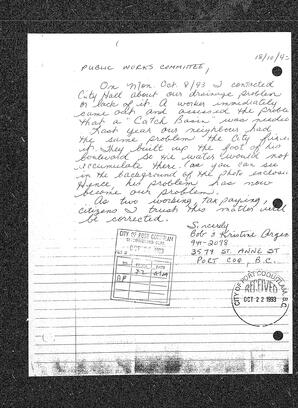 18/10/93
PUBLIC WORKS COMMITTEE,
On Mon Oct 8/93 I contacted
City Hall about our drainage problem
or lack of it. A worker immediately
came out and assessed the problem
that a "Catch Basin" was needed
Last year our neighbour had
the same problem. The City fixed
it. They built up the foot of his
boulevard so the water would not
accumulate there. (as you can see
in the background of the photo enclosed)
Hence, his problem has now
become our problem.
As two working, tax paying,
citizens I trust this matter will
be corrected.
Sincerely
Bob & Kristine
941-2078
3579 ST. ANNE ST
PORT COQ., B.C.
CITY OF PORT COQUITLAM
OCT 1993
CITY OF PORT COQUITLAM, B.C.
OCT 22 1993
RECEIVED